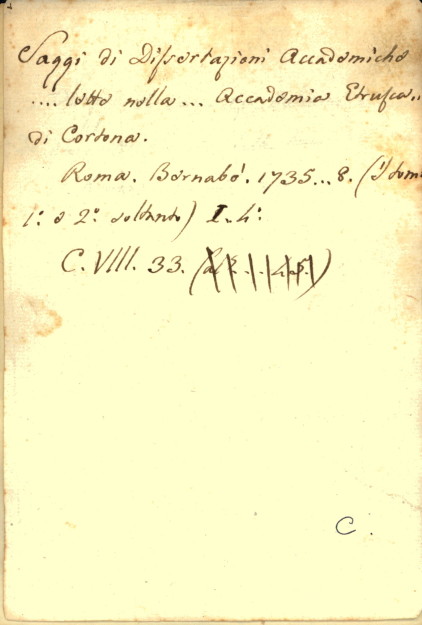 Saggi di Dissertazioni Accademiche
.... lette nella ... Accademia Etrusca..
di Cortona.
Roma. Bernabó. 1735..8. (i tom
1.º e 2.º soltanto) I.. 4.º
C. VIII. 33.
C.